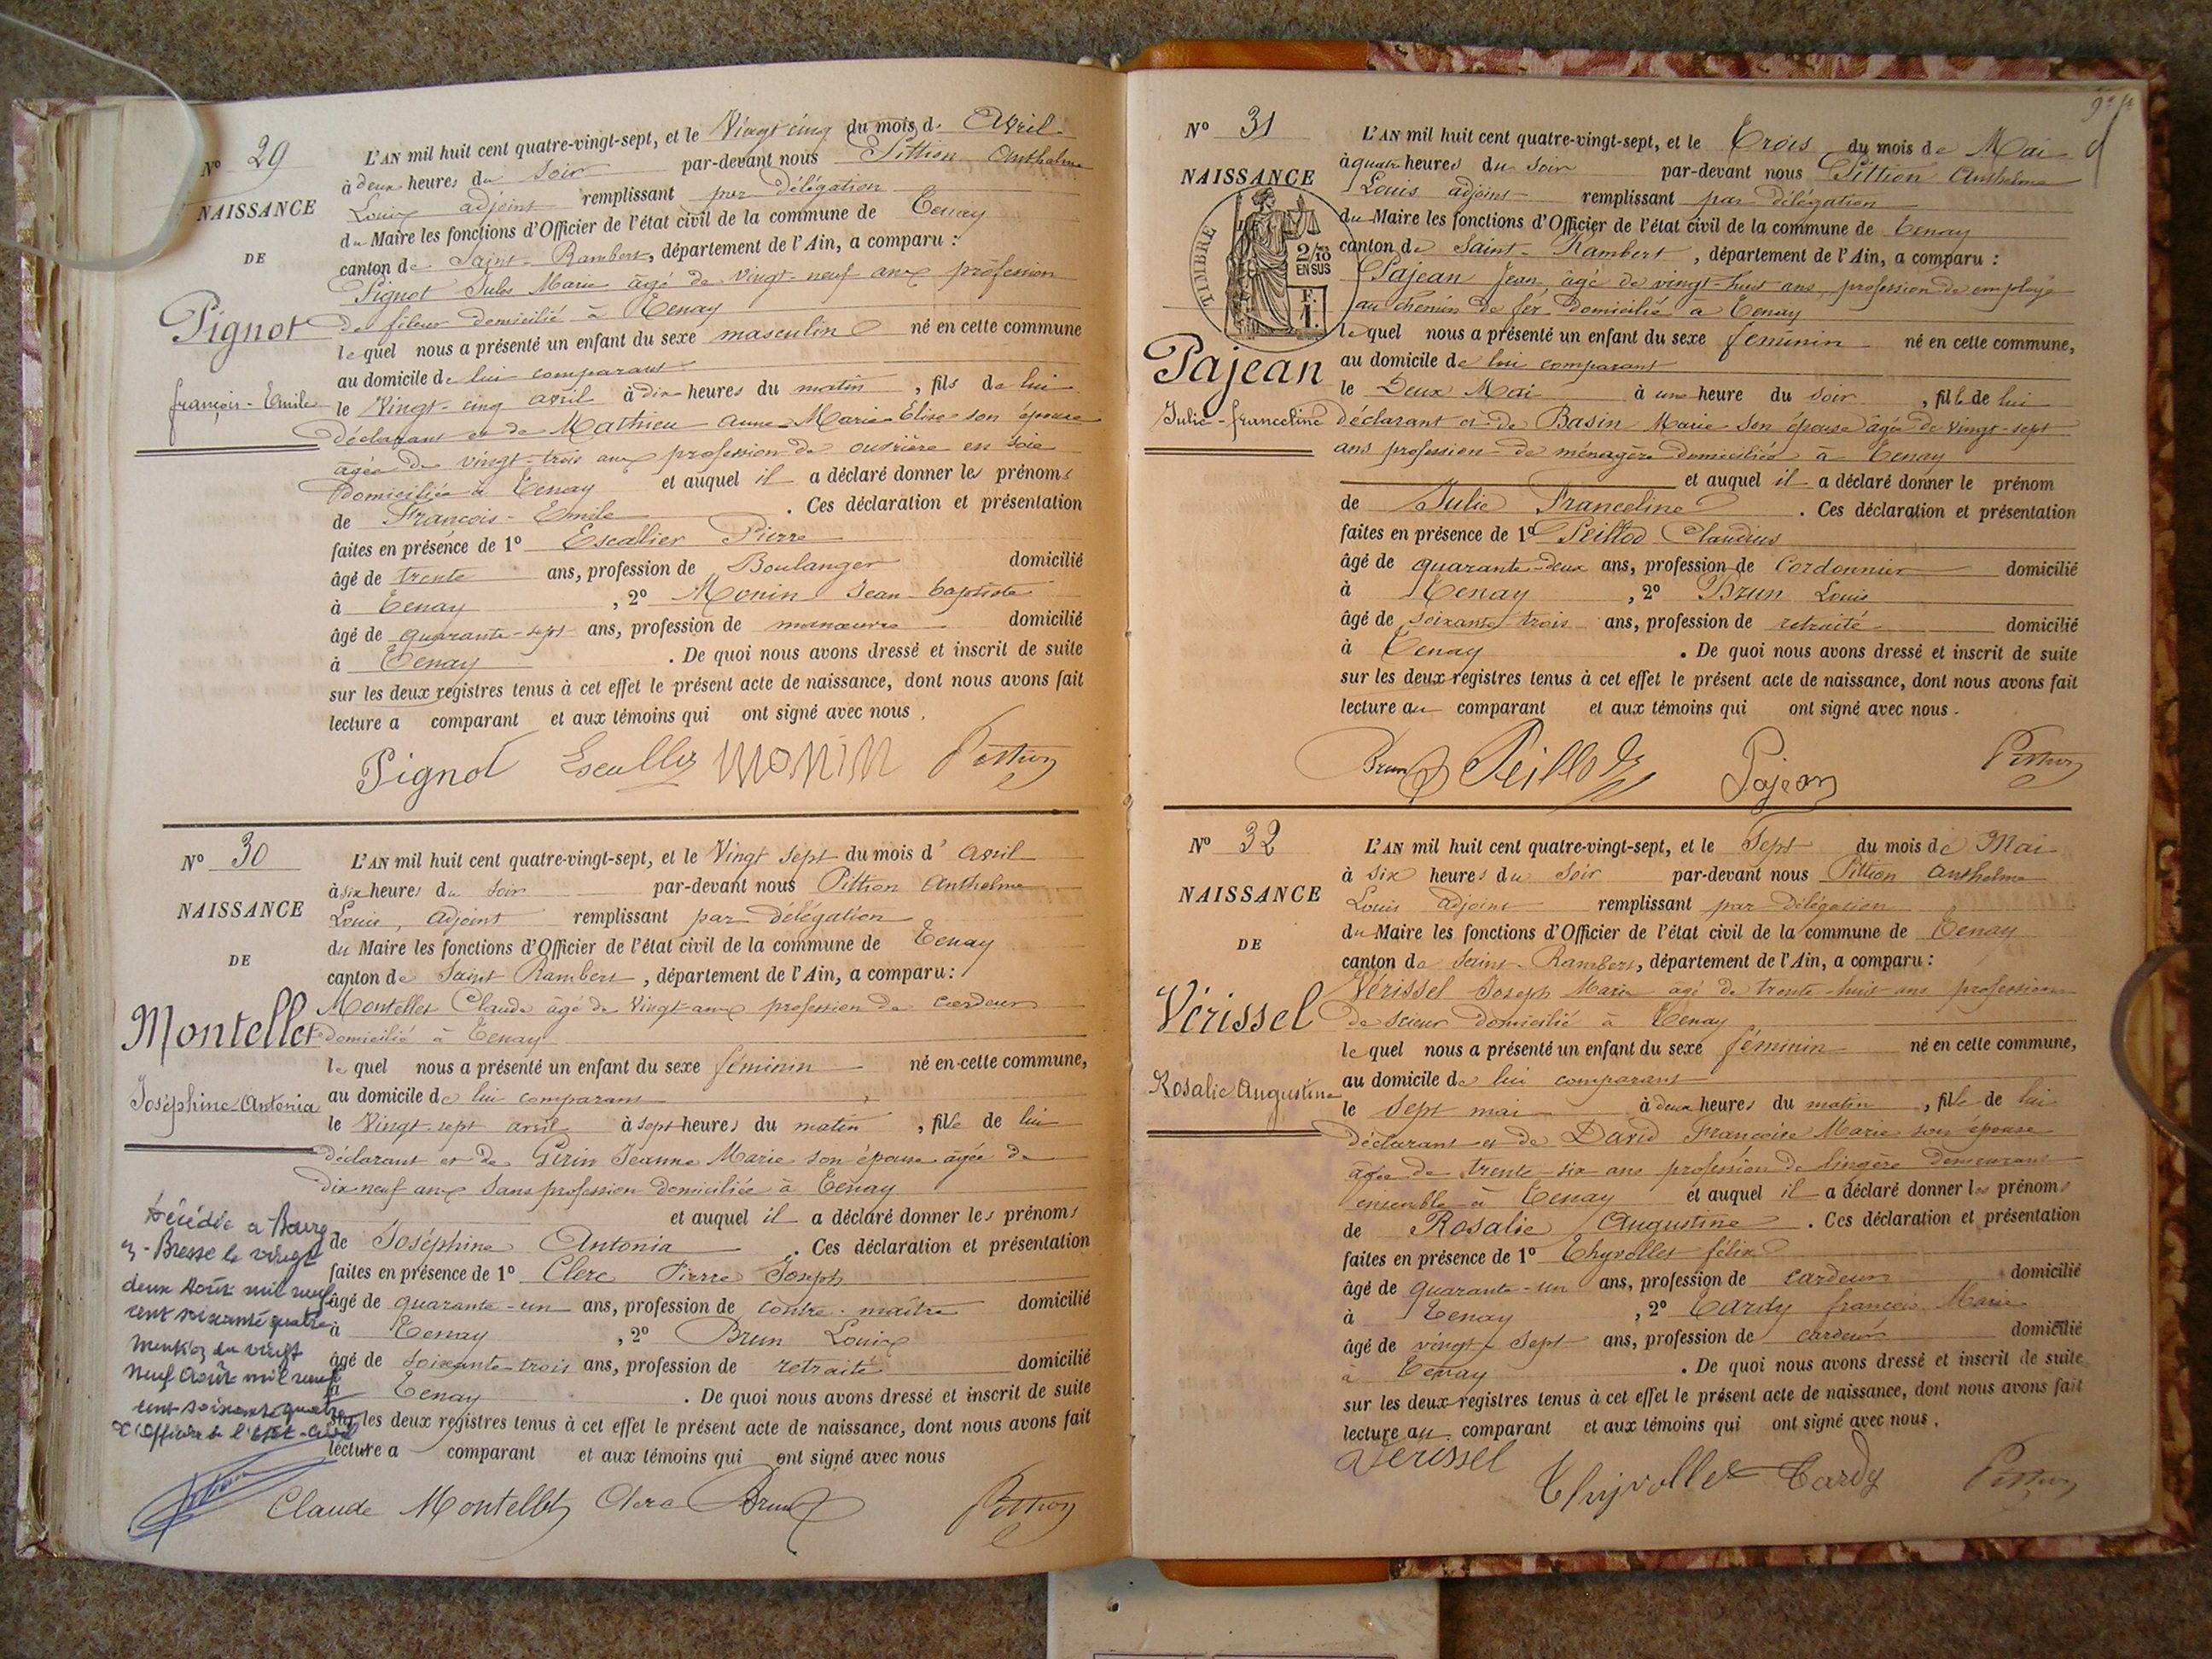 N° 29
NAISSANCE
DE
Pignot
françois-Emile
L'AN mil huit cent quatre-vingt-sept, et le Vingt cinq du mois d' Avril
à deux heures du soir par-devant nous Pittion Anthelme
Louis adjoint remplissant par délégation
du Maire les fonctions d'Officier de l'état civil de la commune de Tenay
canton de Saint-Rambert, département de l'Ain, a comparu :
Pignot Jules Marie âgé de vingt-neuf ans profession
de fileur domicilié à Tenay
lequel nous a présenté un enfant du sexe masculin né en cette commune
au domicile de lui comparant
le Vingt-cinq avril à dix heures du matin, fils de lui
déclarant et de Mathieu Anne-Marie Élise son épouse
âgée de vingt-trois ans profession de ouvrière en soie
domiciliée à Tenay et auquel il a déclaré donner les prénoms
de François-Emile. Ces déclaration et présentation
faites en présence de 1° Escallier Pierre
âgé de trente ans, profession de Boulanger domicilié
à Tenay, 2° Monin Jean-baptiste
âgé de quarante-sept ans, profession de manœuvre domicilié
à Tenay. De quoi nous avons dressé et inscrit de suite
sur les deux registres tenus à cet effet le présent acte de naissance, dont nous avons fait
lecture a comparant et aux témoins qui ont signé avec nous.
Pignot Escallier MONIN Pittion
N° 30
NAISSANCE
DE
Montellet
Joséphine-Antonia
L'AN mil huit cent quatre-vingt-sept, et le Vingt sept du mois d' avril
à six heures du soir par-devant nous Pittion Anthelme
Louis, adjoint remplissant par délégation
du Maire les fonctions d'Officier de l'état civil de la commune de Tenay
canton de Saint Rambert, département de l'Ain, a comparu :
Montellet Claude âgé de Vingt ans profession de cardeur
domicilié à Tenay
lequel nous a présenté un enfant du sexe féminin né en cette commune,
au domicile de lui comparant
le Vingt-sept avril à sept heures du matin, fille de lui
déclarant et de Girin Jeanne Marie son épouse âgée de
dix neuf ans sans profession domiciliée à Tenay
et auquel il a déclaré donner les prénoms
de Joséphine Antonia. Ces déclaration et présentation
faites en présence de 1° Clerc Pierre Joseph
âgé de quarante-un ans, profession de contre-maître domicilié
à Tenay, 2° Brun Louis
âgé de soixante-trois ans, profession de retraité domicilié
à Tenay. De quoi nous avons dressé et inscrit de suite
sur les deux registres tenus à cet effet le présent acte de naissance, dont nous avons fait
lecture a comparant et aux témoins qui ont signé avec nous
Décédée a Bourg
en-Bresse le vingt
deux Août mil neuf
cent soixante quatre
Mention du vingt
neuf Août mil neuf
cent soixante quatre
L'Officier de l'Etat-civil
Claude Montellet Clerc Brun Pittion
9e ft
N° 31
NAISSANCE
TIMBRE
2/10 EN SUS
F. 1.
Pajean
Julie-franceline
L'AN mil huit cent quatre-vingt-sept, et le Trois du mois de Mai
à quatre heures du soir par-devant nous Pittion Anthelme
Louis adjoint remplissant par délégation
du Maire les fonctions d'Officier de l'état civil de la commune de Tenay
canton de Saint-Rambert, département de l'Ain, a comparu :
Pajean Jean, âgé de vingt-huit ans, profession de employé
au chemin de fer domicilié à Tenay
lequel nous a présenté un enfant du sexe féminin né en cette commune,
au domicile de lui comparant
le Deux Mai à une heure du soir, fille de lui
déclarant et de Basin Marie son épouse âgée de vingt-sept
ans profession de ménagère domiciliée à Tenay
et auquel il a déclaré donner le prénom
de Julie Franceline. Ces déclaration et présentation
faites en présence de 1° Peillod Claudius
âgé de quarante-deux ans, profession de Cordonnier domicilié
à Tenay, 2° Brun Louis
âgé de soixante-trois ans, profession de retraité domicilié
à Tenay. De quoi nous avons dressé et inscrit de suite
sur les deux registres tenus à cet effet le présent acte de naissance, dont nous avons fait
lecture au comparant et aux témoins qui ont signé avec nous.
Brun Peillod Pajean Pittion
N° 32
NAISSANCE
DE
Vérissel
Rosalie Augustine
L'AN mil huit cent quatre-vingt-sept, et le Sept du mois de Mai
à six heures du soir par-devant nous Pittion Anthelme
Louis adjoint remplissant par délégation
du Maire les fonctions d'Officier de l'état civil de la commune de Tenay
canton de Saint-Rambert, département de l'Ain, a comparu :
Vérissel Joseph Marie agé de trente-huit ans profession
de scieur domicilié à Tenay
lequel nous a présenté un enfant du sexe féminin né en cette commune,
au domicile de lui comparant
le sept mai à deux heures du matin, fille de lui
déclarant et de David Françoise Marie son épouse
âgée de trente-six ans profession de lingère demeurant
ensemble à Tenay et auquel il a déclaré donner les prénoms
de Rosalie Augustine. Ces déclaration et présentation
faites en présence de 1° Thyvollet félix
âgé de quarante-un ans, profession de cardeur domicilié
à Tenay, 2° Tardy françois Marie
âgé de vingt sept ans, profession de cardeur domicilié
à Tenay. De quoi nous avons dressé et inscrit de suite
sur les deux registres tenus à cet effet le présent acte de naissance, dont nous avons fait
lecture au comparant et aux témoins qui ont signé avec nous.
Verissel Thyvollet Tardy Pittion